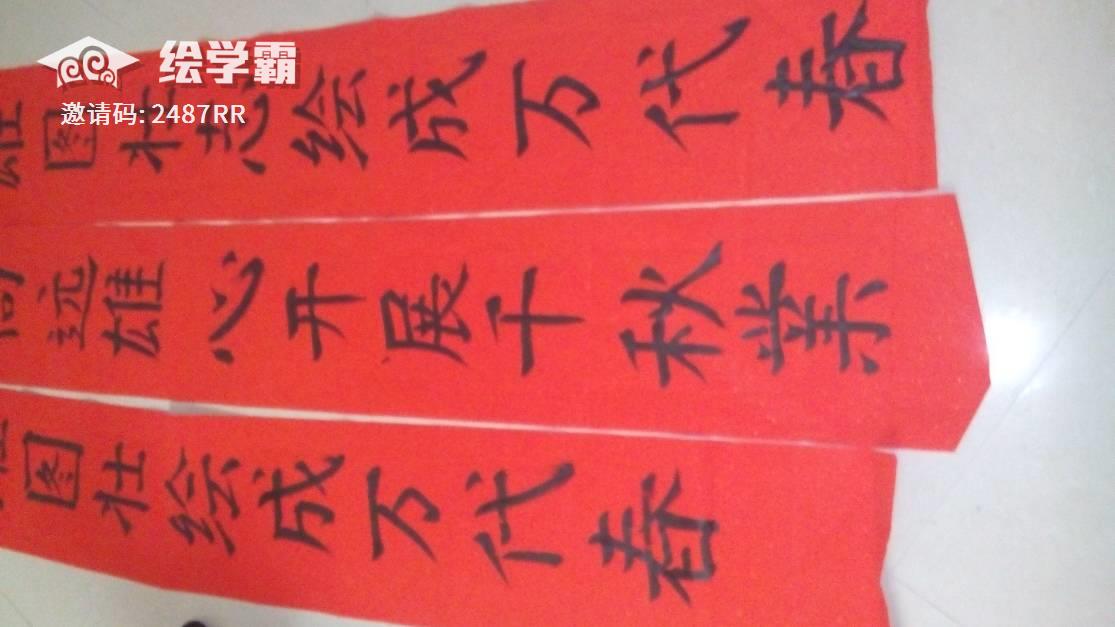 绘学霸
邀请码: 2487RR
雄图壮志绘成万代春
远雄心开展千秋业
图壮绘成万代春